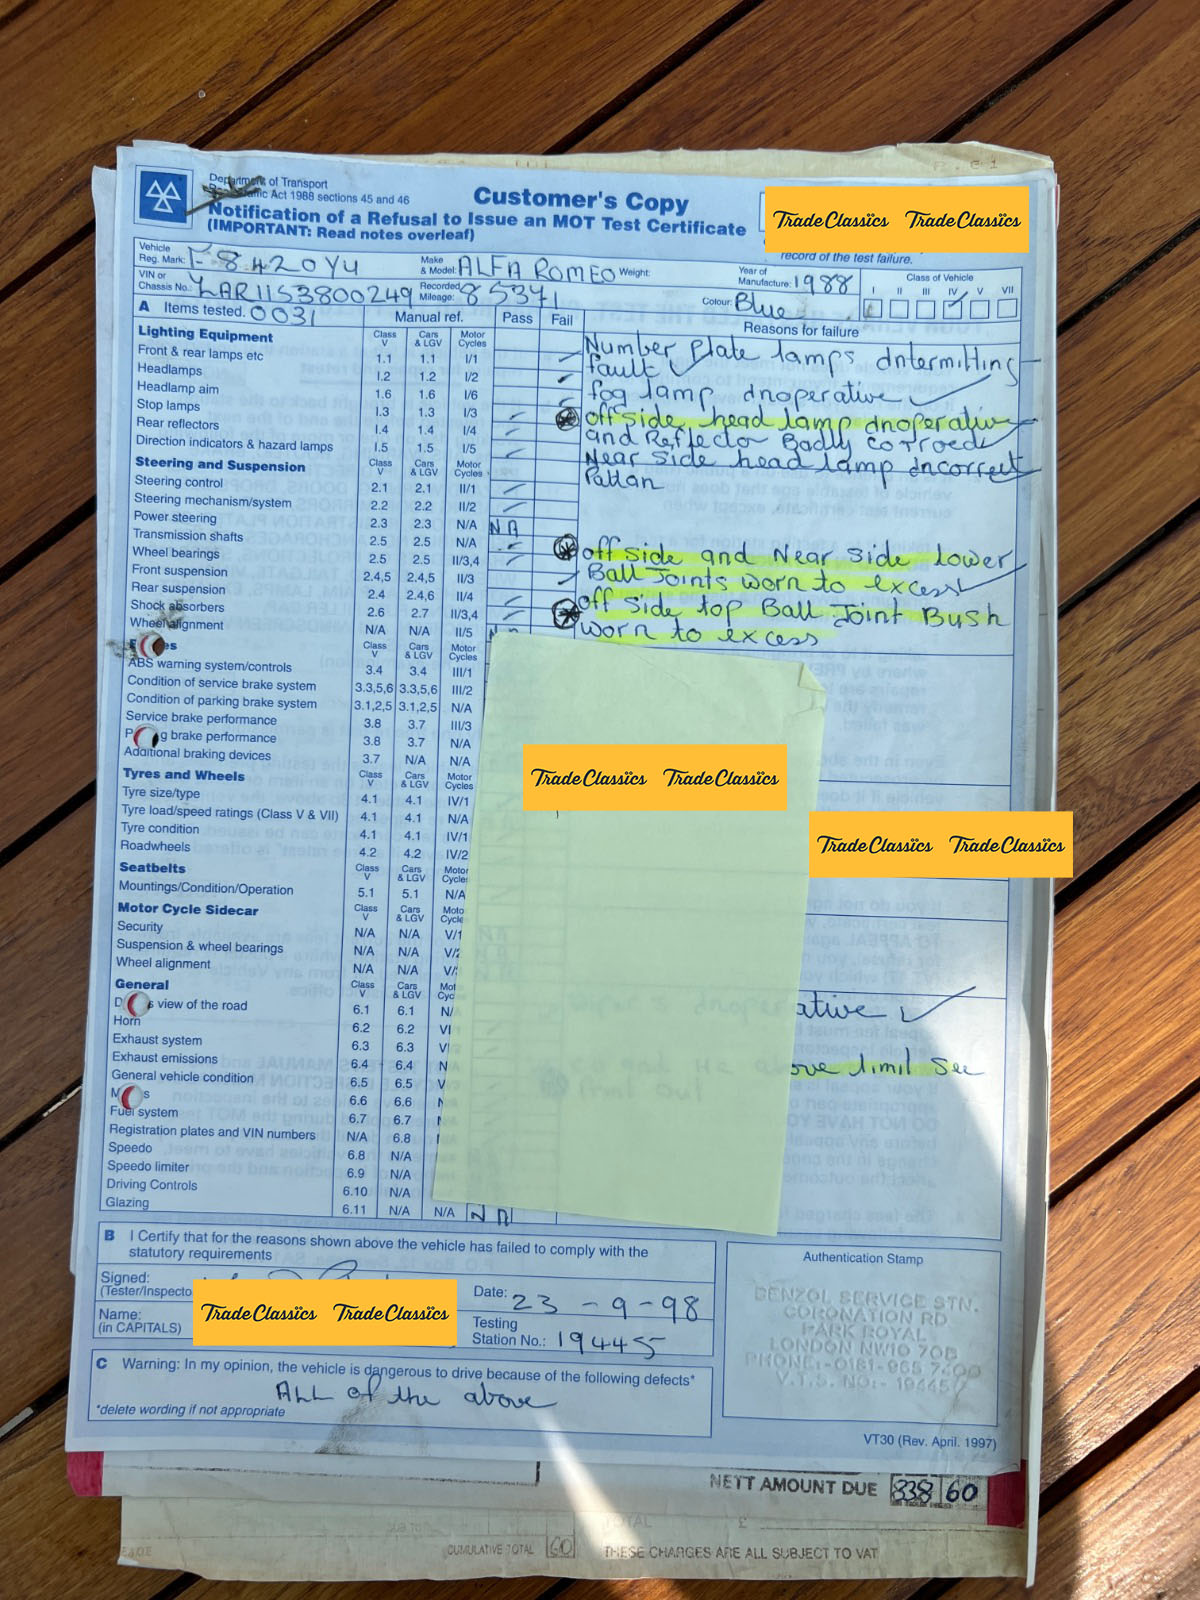 Department of Transport
Act 1988 sections 45 and 46
Customer's Copy
Notification of a Refusal to Issue an MOT Test Certificate
(IMPORTANT: Read notes overleaf)
TradeClassics TradeClassics
record of the test failure.
Vehicle Reg. Mark: 8420 YU Make & Model: ALFA ROMEO Weight: Year of Manufacture: 1988 Class of Vehicle
I II III IV V VII
VIN or Chassis No.: ZAR11S3800249 Recorded Mileage: 85371 Colour: Blue
A Items tested. 0031 Manual ref. Pass Fail Reasons for failure
Lighting Equipment Class V Cars & LGV Motor Cycles
Front & rear lamps etc 1.1 1.1 I/1
Headlamps 1.2 1.2 I/2
Headlamp aim 1.6 1.6 I/6
Stop lamps 1.3 1.3 I/3
Rear reflectors 1.4 1.4 I/4
Direction indicators & hazard lamps 1.5 1.5 I/5
Number plate lamps intermitting
fault
fog lamp inoperative
off side head lamp inoperative
and Reflector Badly corroed
Near side head lamp incorrect
Pattan
Steering and Suspension Class V Cars & LGV Motor Cycles
Steering control 2.1 2.1 II/1
Steering mechanism/system 2.2 2.2 II/2
Power steering 2.3 2.3 N/A NA
Transmission shafts 2.5 2.5 N/A
Wheel bearings 2.5 2.5 II/3,4
Front suspension 2.4,5 2.4,5 II/3
Rear suspension 2.4 2.4,6 II/4
Shock absorbers 2.6 2.7 II/3,4
Wheel alignment N/A N/A II/5
off side and Near side lower
Ball Joints worn to excess
off side top Ball Joint Bush
worn to excess
Class V Cars & LGV Motor Cycles
ABS warning system/controls 3.4 3.4 III/1
Condition of service brake system 3.3,5,6 3.3,5,6 III/2
Condition of parking brake system 3.1,2,5 3.1,2,5 N/A
Service brake performance 3.8 3.7 III/3
brake performance 3.8 3.7 N/A
Additional braking devices 3.7 N/A N/A
TradeClassics TradeClassics
Tyres and Wheels Class V Cars & LGV Motor Cycles
Tyre size/type 4.1 4.1 IV/1
Tyre load/speed ratings (Class V & VII) 4.1 4.1 N/A
Tyre condition 4.1 4.1 IV/1
Roadwheels 4.2 4.2 IV/2
TradeClassics TradeClassics
Seatbelts Class V Cars & LGV Motor Cycles
Mountings/Condition/Operation 5.1 5.1 N/A
Motor Cycle Sidecar Class V Cars & LGV
Security N/A N/A V/1
Suspension & wheel bearings N/A N/A V/2
Wheel alignment N/A N/A
General Class V Cars & LGV
view of the road 6.1 6.1
Horn 6.2 6.2
Exhaust system 6.3 6.3
Exhaust emissions 6.4 6.4
General vehicle condition 6.5 6.5
6.6 6.6
Fuel system 6.7 6.7
Registration plates and VIN numbers N/A 6.8
Speedo 6.8 N/A
Speedo limiter 6.9 N/A
Driving Controls 6.10 N/A
Glazing 6.11 N/A N/A NA
ative
ove limit See
B I Certify that for the reasons shown above the vehicle has failed to comply with the
statutory requirements
Signed:
(Tester/Inspecto
Date: 23-9-98
TradeClassics TradeClassics
Name:
(in CAPITALS)
Testing Station No.: 194455
Authentication Stamp
BENZOL SERVICE STN.
CORONATION RD
PARK ROYAL
LONDON NW10 7QB
PHONE:-0181-965 7400
V.T.S. NO:- 194455
C Warning: In my opinion, the vehicle is dangerous to drive because of the following defects*
ALL of the above
*delete wording if not appropriate
VT30 (Rev. April. 1997)
NETT AMOUNT DUE 838 60
CUMULATIVE TOTAL 60 THESE CHARGES ARE ALL SUBJECT TO VAT
E&OE